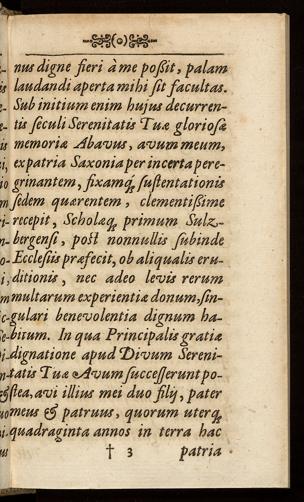 (o)
nus digne fieri à me poßit, palam
laudandi aperta mihi sit facultas.
Sub initium enim hujus decurren-
tis seculi Serenitatis Tuæ gloriosæ
memoriæ Abavus, avum meum,
ex patria Saxonia per incerta pere-
grinantem, fixamq́; sustentationis
sedem quærentem, clementißime
recepit, Scholæq́; primum Sulz-
bergensi, post nonnullis subinde
Ecclesiis præfecit, ob aliqualis eru-
ditionis, nec adeo levis rerum
multarum experientiæ donum, sin-
gulari benevolentia dignum ha-
bitum. In qua Principalis gratiæ
dignatione apud Divum Sereni-
tatis Tuæ Avum successerunt po-
stea, avi illius mei duo filij, pater
meus & patruus, quorum uterq́;
quadraginta annos in terra hac
† 3 patria